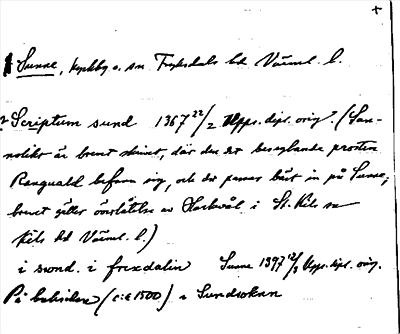 Sunne, kyrkby o. sn Fryksdals hd Värml. l.
? Scriptum sund 1367 22/2 Upps. dipl. orig.? (San-
nolikt är brevet skrivet, där den det beseglande prosten
Rangvald befann sig, och det passar bäst in på Sunne,
brevet gäller överlåtelse av Hackvål i St. Kils sn
Kils hd Värml. l.)
i swnd. i frexdalin Sunne 1397 12/3 Upps. dipl. orig.
På baksidan (c:a 1500) Sundsokan